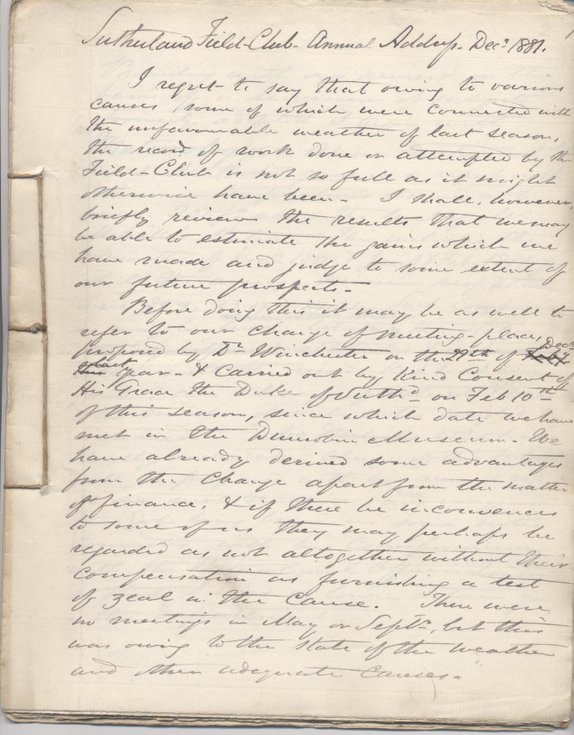 Sutherland Field-Club - Annual Address - Decr 1881.
I regret to say that owing to various
causes, some of which were connected with
the unfavourable weather of last season,
the record of work done or attempted by the
Field-Club is not so full as it might
otherwise have been - I shall, however,
briefly review the results that we may
be able to estimate the gains which we
have made and judge to some extent of
our future prospects -
Before doing this it may be as well to
refer to our change of meeting-place,
proposed by Dr Winchester on the of Decr
last year - & carried out by kind consent of
His Grace the Duke of Suthd on Feb 10th
of this season, since which date we have
met in the Dunrobin Museum - We
have already derived some advantages
from the change apart from the matter
of finance, & if there be inconvences
to some of us they may perhaps be
regarded as not altogether without their
compensation as furnishing a test
of zeal in the cause. There were
no meetings in May or Septr, but this
was owing to the state of the weather
and other adequate causes -